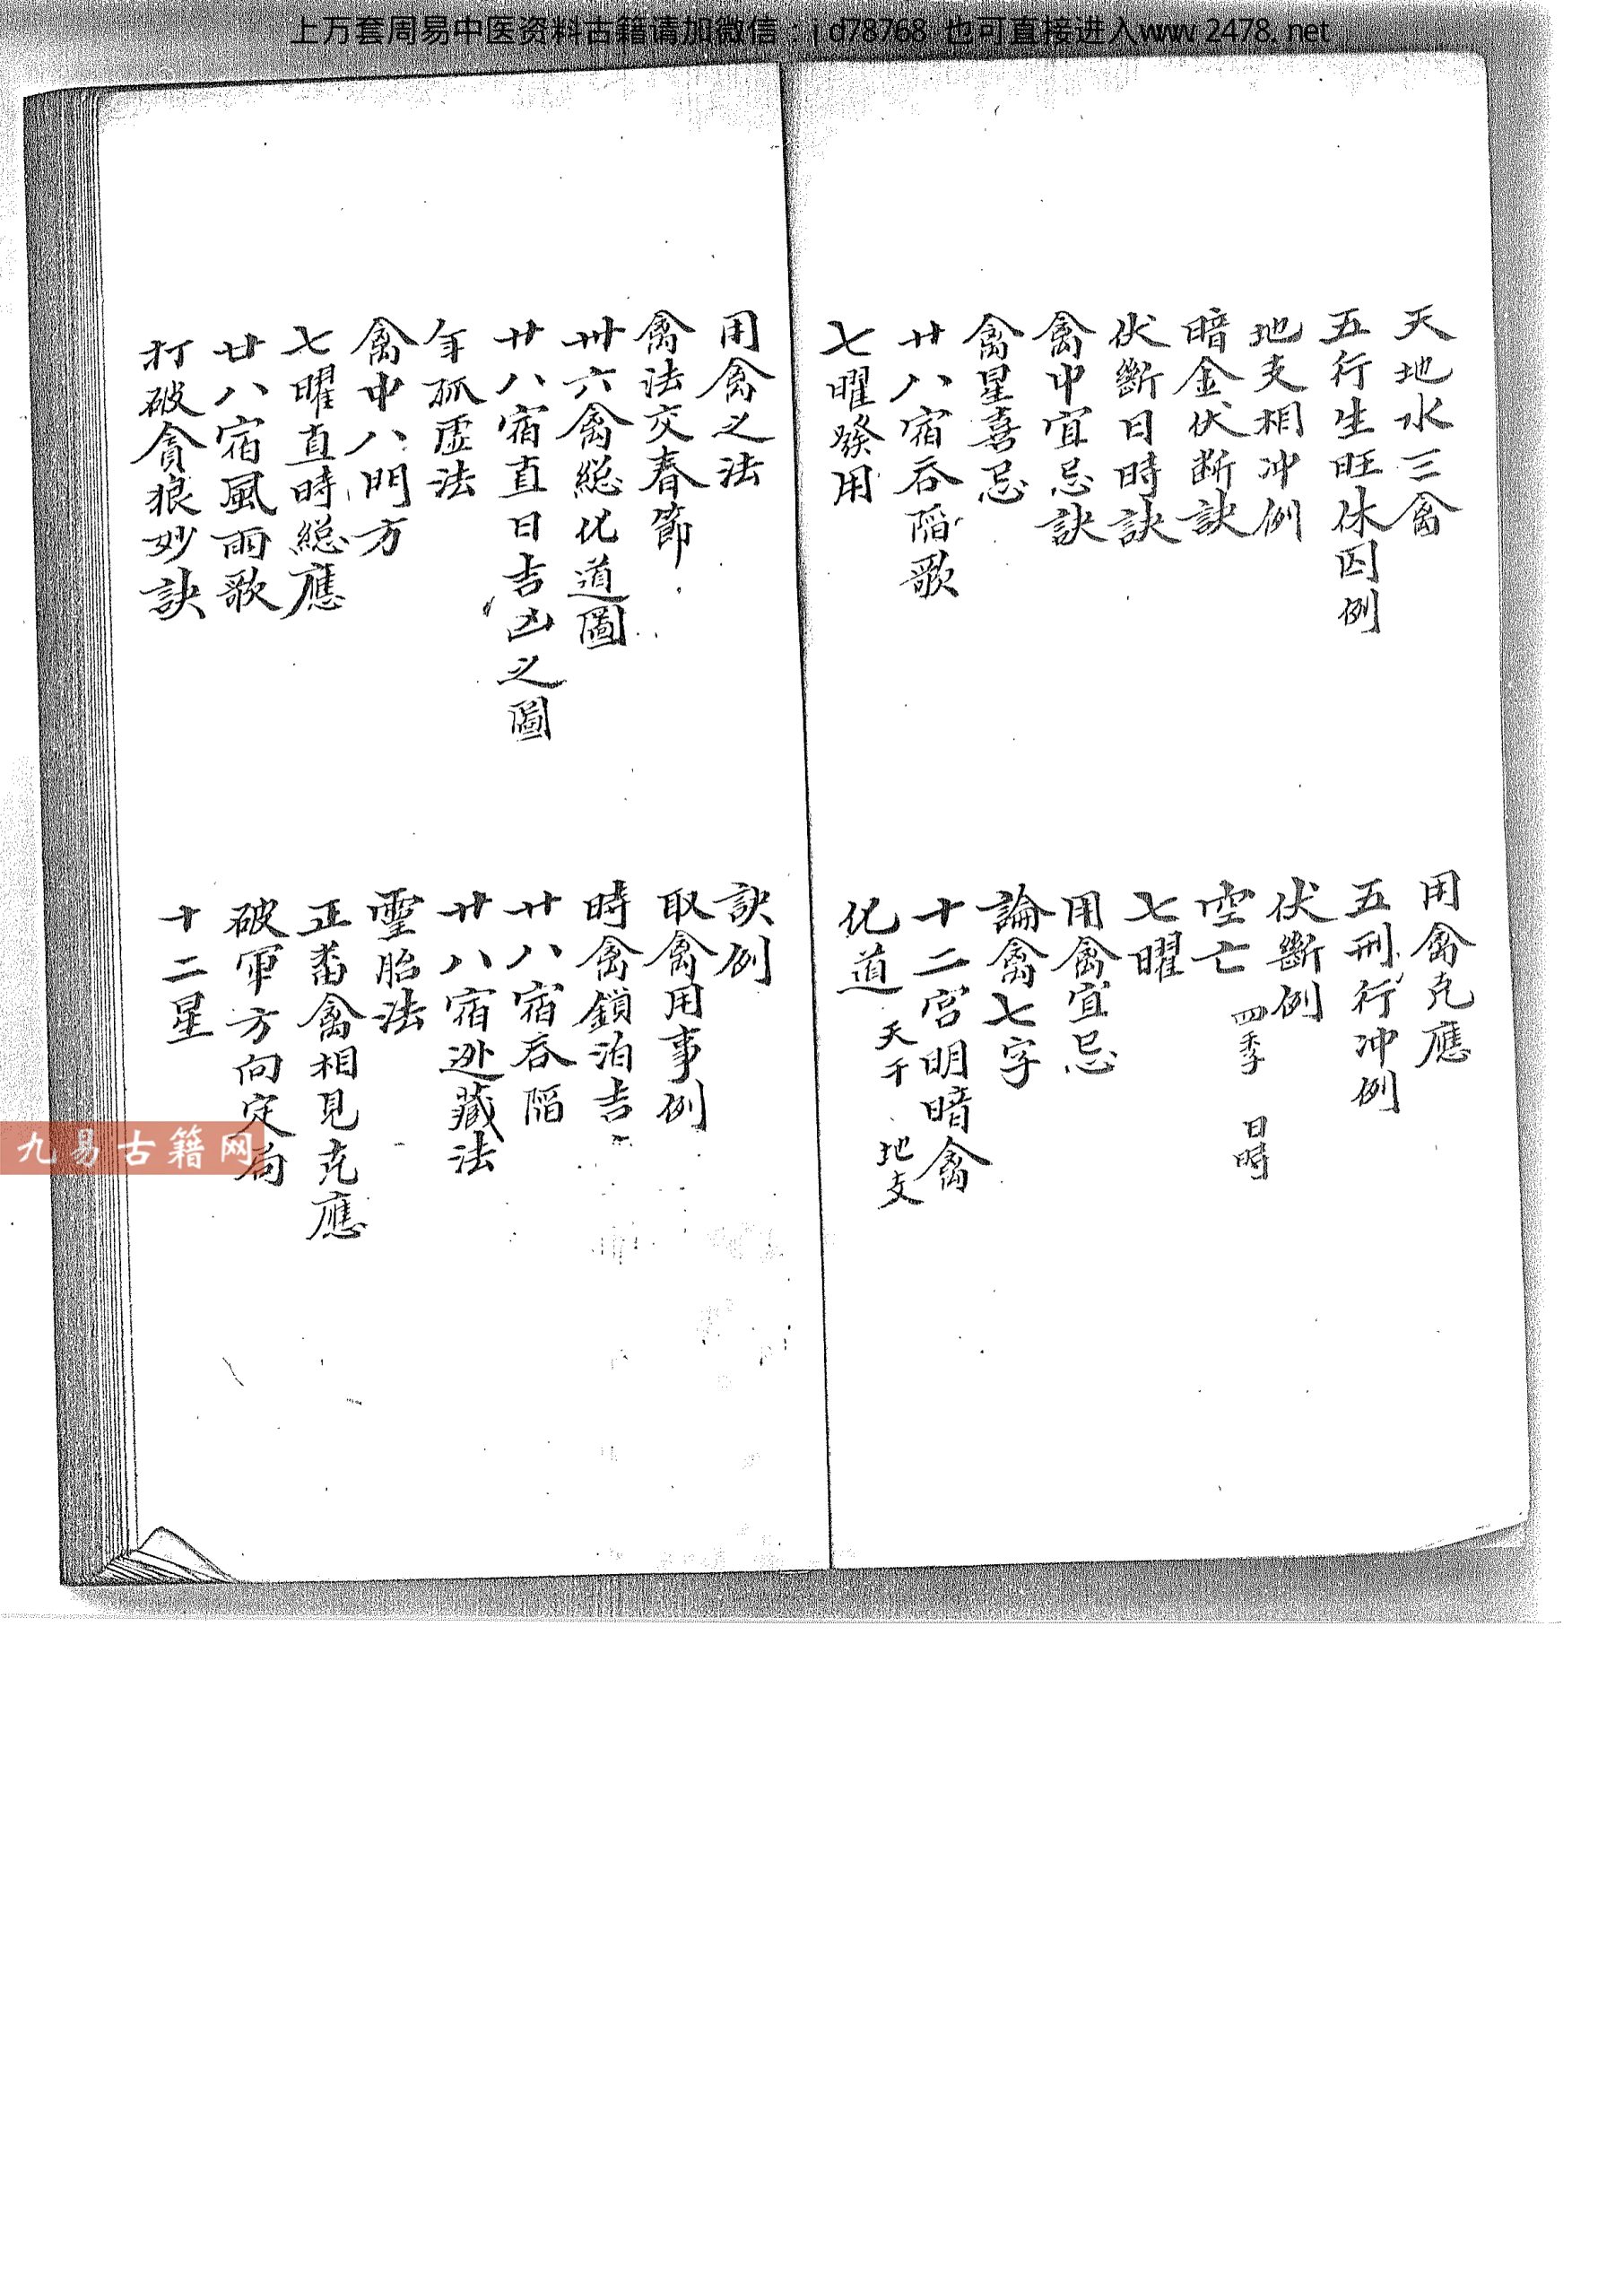 上万套周易中医资料古籍请加微信：id78768 也可直接进入www.2478.net
天地水三禽
用禽克應
五行生旺休囚例
五刑行冲例
地支相冲例
伏斷例
暗金伏断訣
空亡 四季 日時
伏斷日時訣
七曜
禽中宜忌訣
用禽宜忌
禽星喜忌
論禽七字
廿八宿吞陷歌
十二宫明暗禽
七曜發用
化道 天干 地支
用禽之法
訣例
禽法交春節
取禽用事例
卅六禽総化道圖
時禽鎖泊吉
廿八宿直日吉凶之圖
廿八宿吞陷
年孤虚法
廿八宿迯藏法
禽中八門方
霊胎法
七曜直時総應
正畨禽相見克應
廿八宿風雨歌
破軍方向定局
打破貪狼妙訣
十二星
九易古籍网